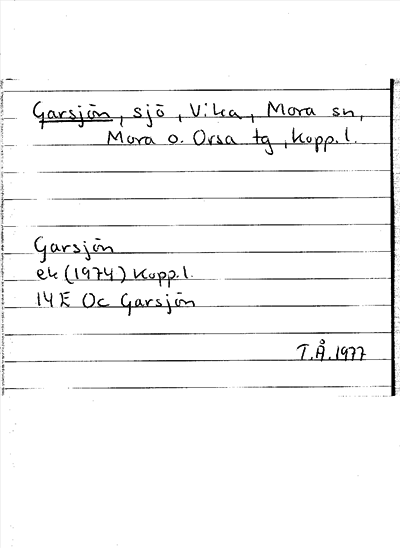 Garsjön, sjö, Vika, Mora sn,
Mora o. Orsa tg, Kopp.l.
Garsjön
ek (1974) Kopp.l.
14E Oc Garsjön
T.Å. 1977